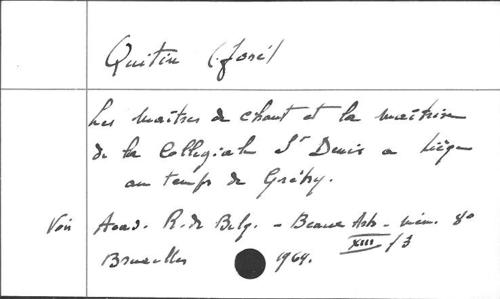 Quitin (José)
Les maîtres de chant et la maîtrise
de la Collégiale St Denis a Liège
au temps de Grétry.
Voir Acad. R. de Belg. - Beaux Arts - mém. 80
XIII/3
Bruxelles 1964.